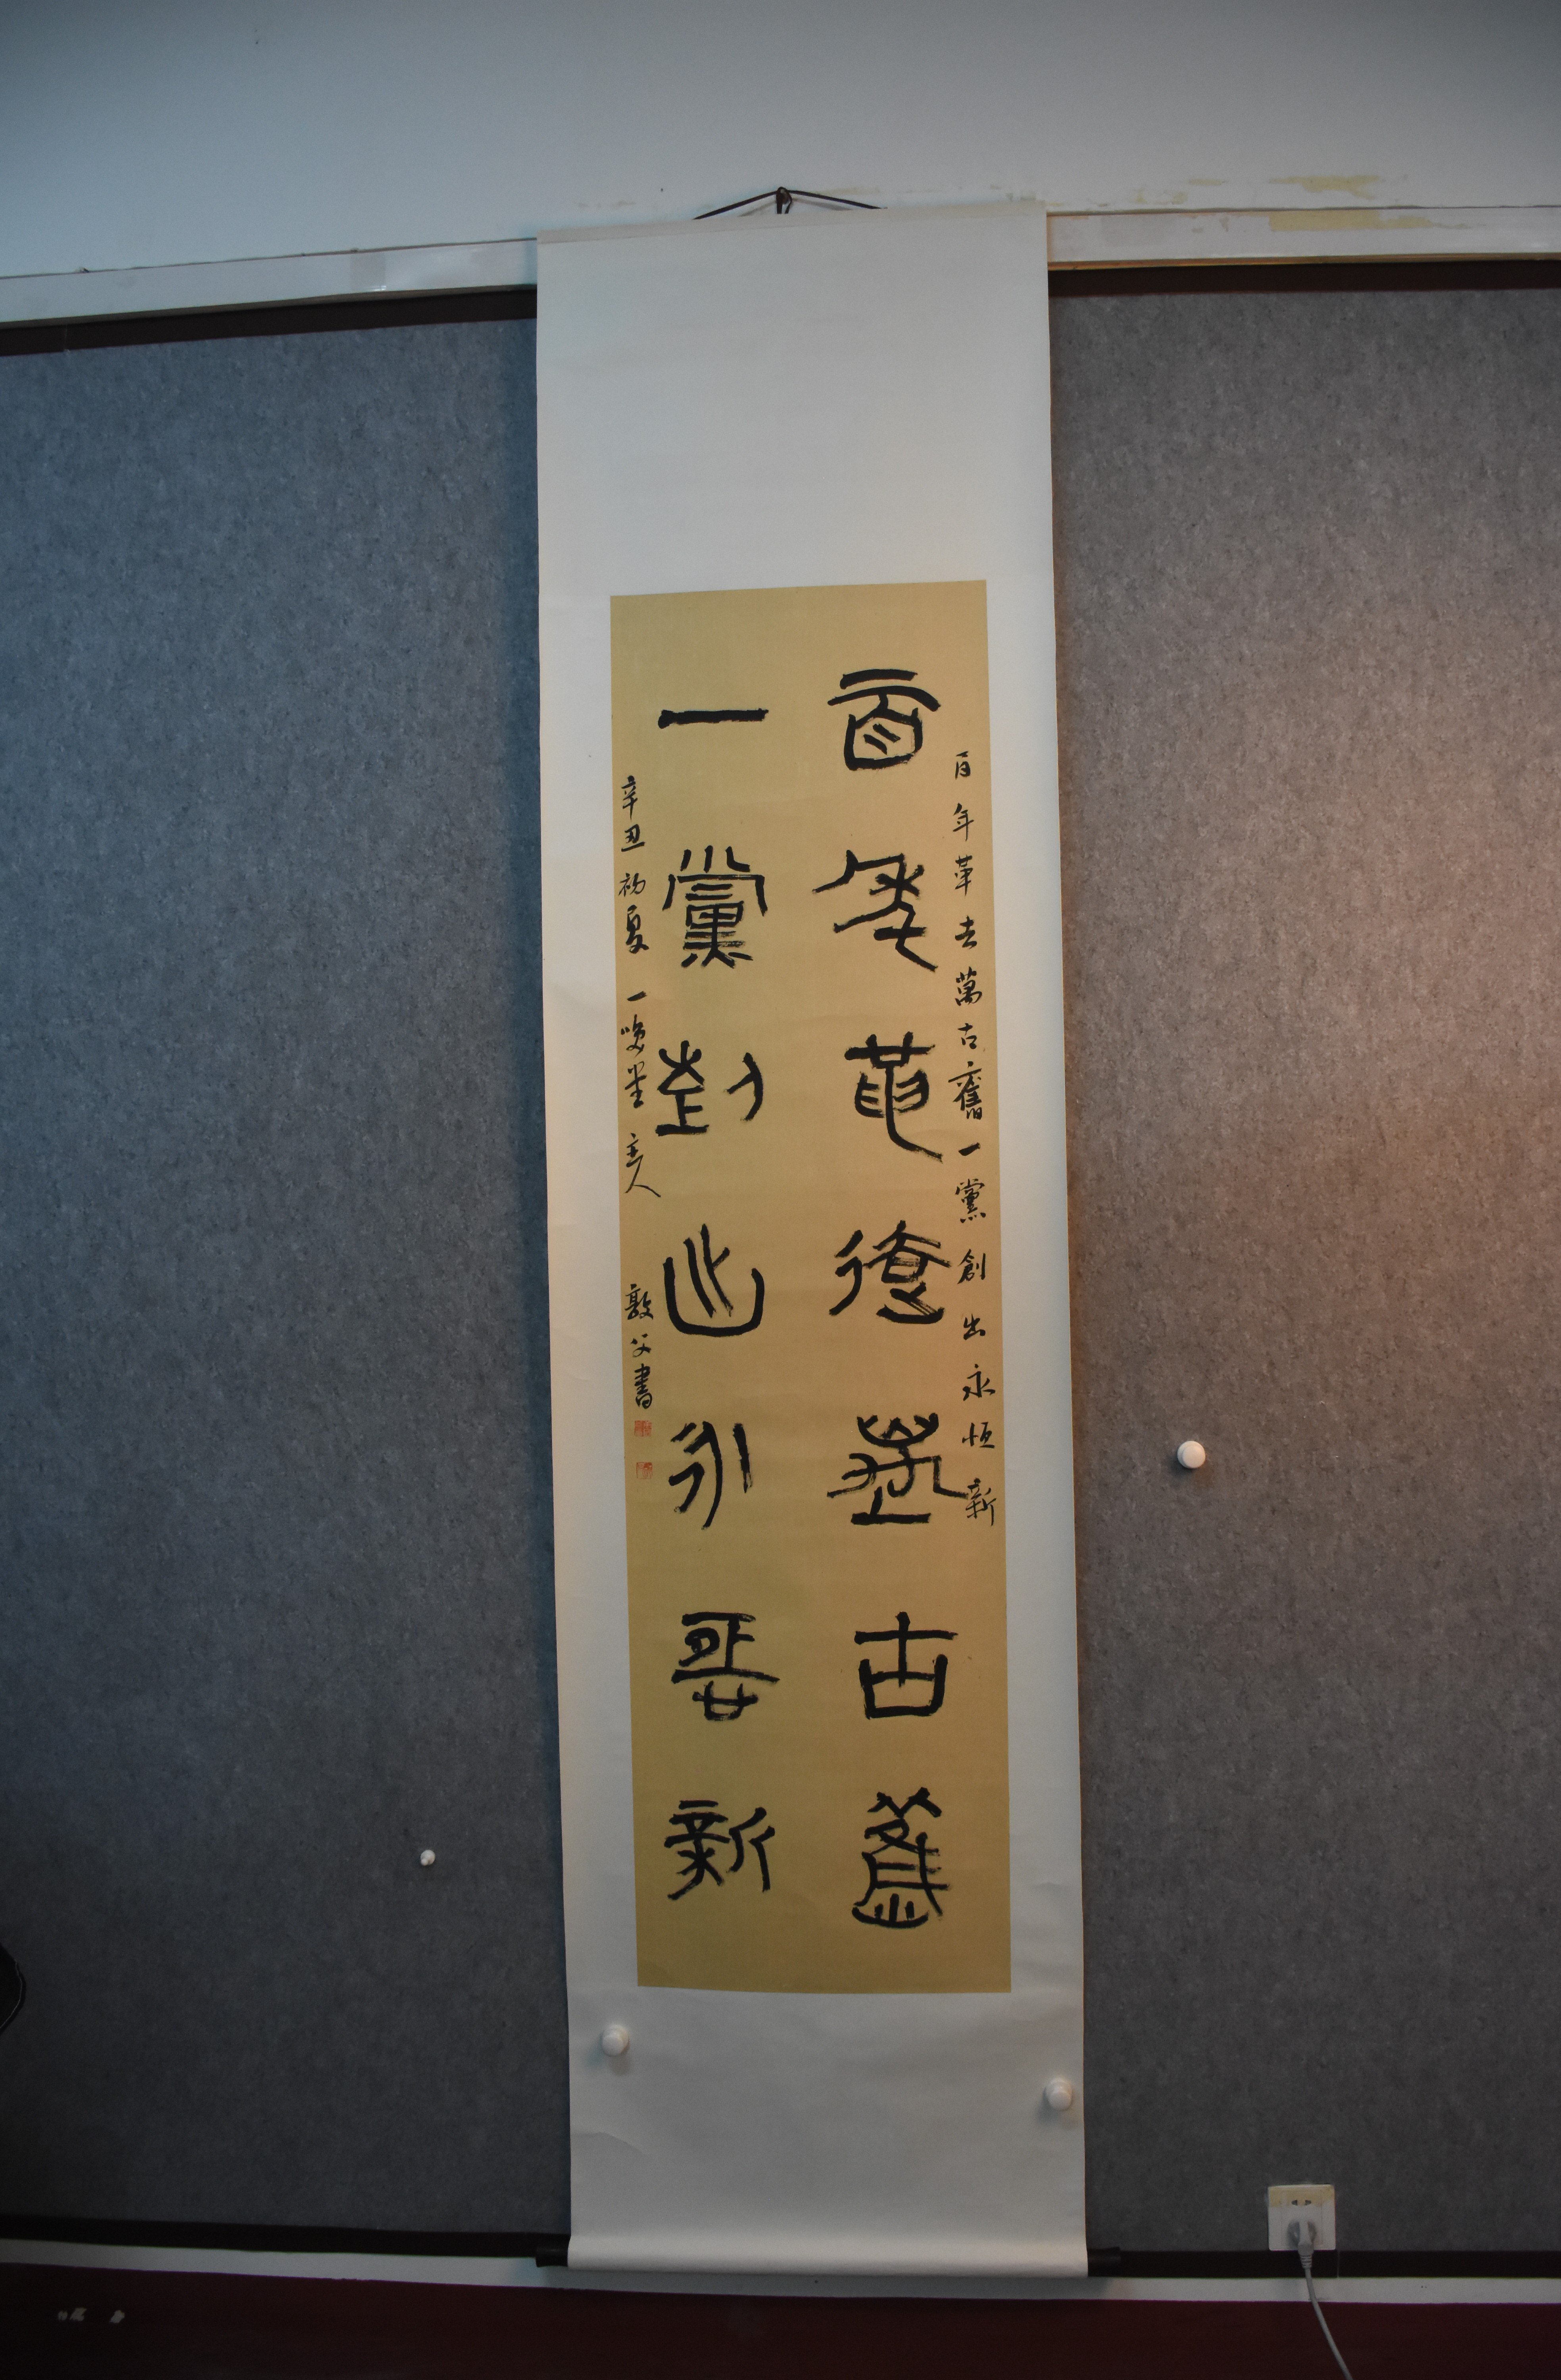 百年革去萬古舊一黨創出永恒新
百年革去萬古舊
一黨創出永恒新
辛丑初夏一喚堂主人 敦父書